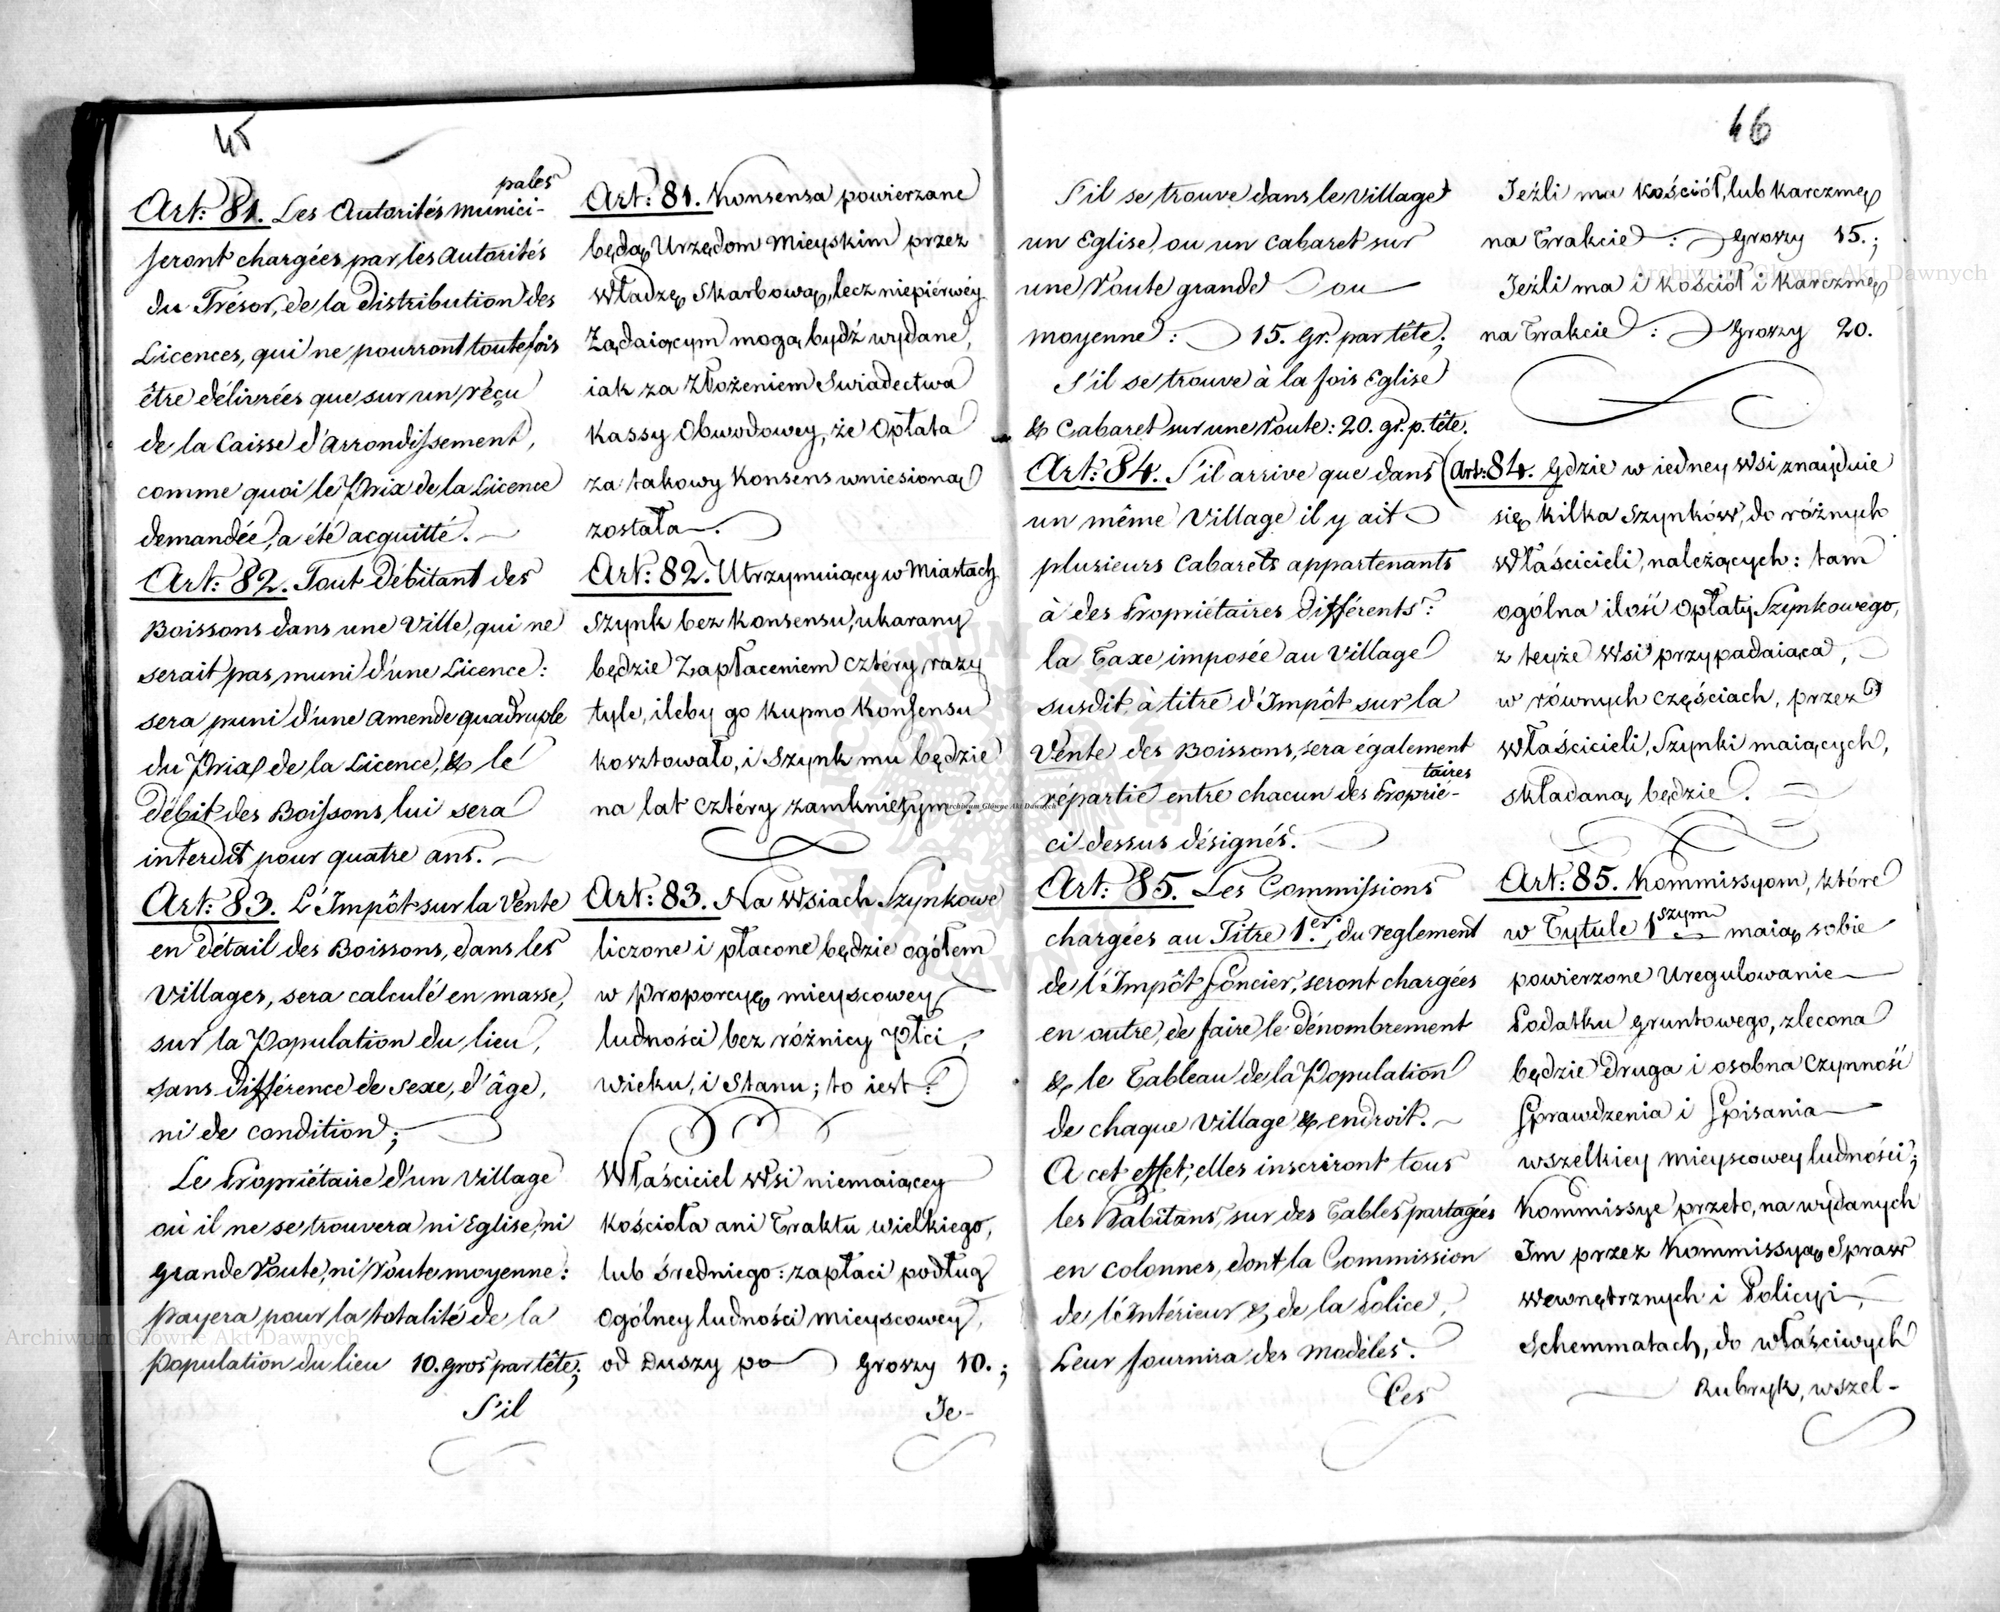 45
Art: 81. Les Autorités munici-
pales
seront chargées par les Autorités
du Trésor, de la distribution des
Licences, qui ne pourront toutefois
être délivrées que sur un reçu
de la Caisse d'Arrondissement,
comme quoi le Prix de la Licence
demandée, a été acquitté.
Art: 82. Tout Débitant des
Boissons dans une Ville, qui ne
serait pas muni d'une Licence:
sera puni d'une amende quadruple
du Prix de la Licence, & le
Débit des Boissons lui sera
interdit pour quatre ans.
Art: 83. L'Impôt sur la Vente
en détail des Boissons, dans les
Villages, sera calculé en masse,
sur la Population du lieu,
sans différence de sexe, d'âge,
ni de condition;
Le Propriétaire d'un Village
où il ne se trouvera ni Eglise, ni
grande Route, ni Route moyenne:
payera pour la totalité de la
population du lieu 10. gros par tête;
S'il
Art: 81. Konsensa powierzane
będą Urzędom Mieyskim przez
Władzę Skarbową, lecz niepiérwéy
Żądaiącym mogą bydź wydane,
iak za Złożeniem Swiadectwa
Kassy Obwodowey, że Opłata
za takowy Konsens wniesioną
została.
Art: 82. Utrzymuiący w Miastach
Szynk bez Konsensu, ukarany
będzie Zapłaceniem cztéry razy
tyle, ileby go kupno Konsensu
kosztowało, i Szynk mu będzie
na lat cztéry zamkniętym.
Art: 83. Na Wsiach Szynkowe
liczone i płacone będzie ogółem
w Proporcyę mieyscowey
ludności bez różnicy Płci,
wieku, i Stanu; to iest:
Właściciel Wsi niemaiącey
kościoła ani Traktu wielkiego,
lub średniego: zapłaci podług
Ogólney ludności mieyscowey,
od Duszy po groszy 10.;
Je-
46
S'il se trouve dans le Village
un Eglise, ou un Cabaret sur
une Route grande ou
moyenne: 15. Gr. par tête;
S'il se trouve à la fois Eglise
& Cabaret sur une Route: 20. gr. p. tête.
Art: 84. S'il arrive que dans
un même Village il y ait
plusieurs Cabarets appartenants
à des Propriétaires différents:
la Taxe imposée au Village
susdit, à titre d'Impôt sur la
Vente des Boissons, sera également
répartie entre chacun des Proprié-
taires
ci-dessus désignés.
Art: 85. Les Commissions
chargées au Titre 1er, du reglement
de l'Impôt foncier, seront chargées
en outre, de faire le dénombrement
& le Tableau de la Population
de chaque Village & endroit.
A cet effet, elles inscriront tous
les habitans, sur des Tables partagées
en colonnes, dont la Commission
de l'intérieur & de la Police,
Leur fournira des modèles.
Ces
Jeźli ma kościół, lub karczmę
na Trakcie: Groszy 15.;
Jeźli ma i kościół i karczmę
na Trakcie: Groszy 20.
Art: 84. Gdzie w iedney Wsi znayduie
się kilka Szynków, do różnych
Właścicieli, należących: tam
ogólna ilość Opłaty Szynkowego,
z teyże Wsi przypadaiąca,
w równych częściach, przez
Właścicieli, Szynki maiących,
składaną będzie.
Art: 85. Kommissyom, które
w Tytule 1szym maią sobie
powierzone Uregulowanie
Podatku gruntowego, zlecona
będzie druga i osobna Czynność
Sprawdzenia i Spisania
wszelkiey mieyscowey ludności;
Kommissye przeto, na wydanych
Im przez Kommissyą Spraw
Wewnętrznych i Policyi,
Schemmatach, do właściwych
Rubryk, wszel-
Archiwum Główne Akt Dawnych
Archiwum Główne Akt Dawnych
Archiwum Główne Akt Dawnych